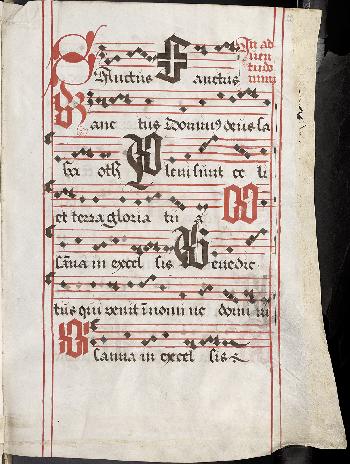 Sanctus Sanctus
In ad
uen
tu do
mini
Sanc tus Dominus deus sa
ba oth Pleni sunt ce li
et terra gloria tu a O
sanna in excel sis Benedic
tus qui venit in nomi ne domi ni
Osanna in excel sis